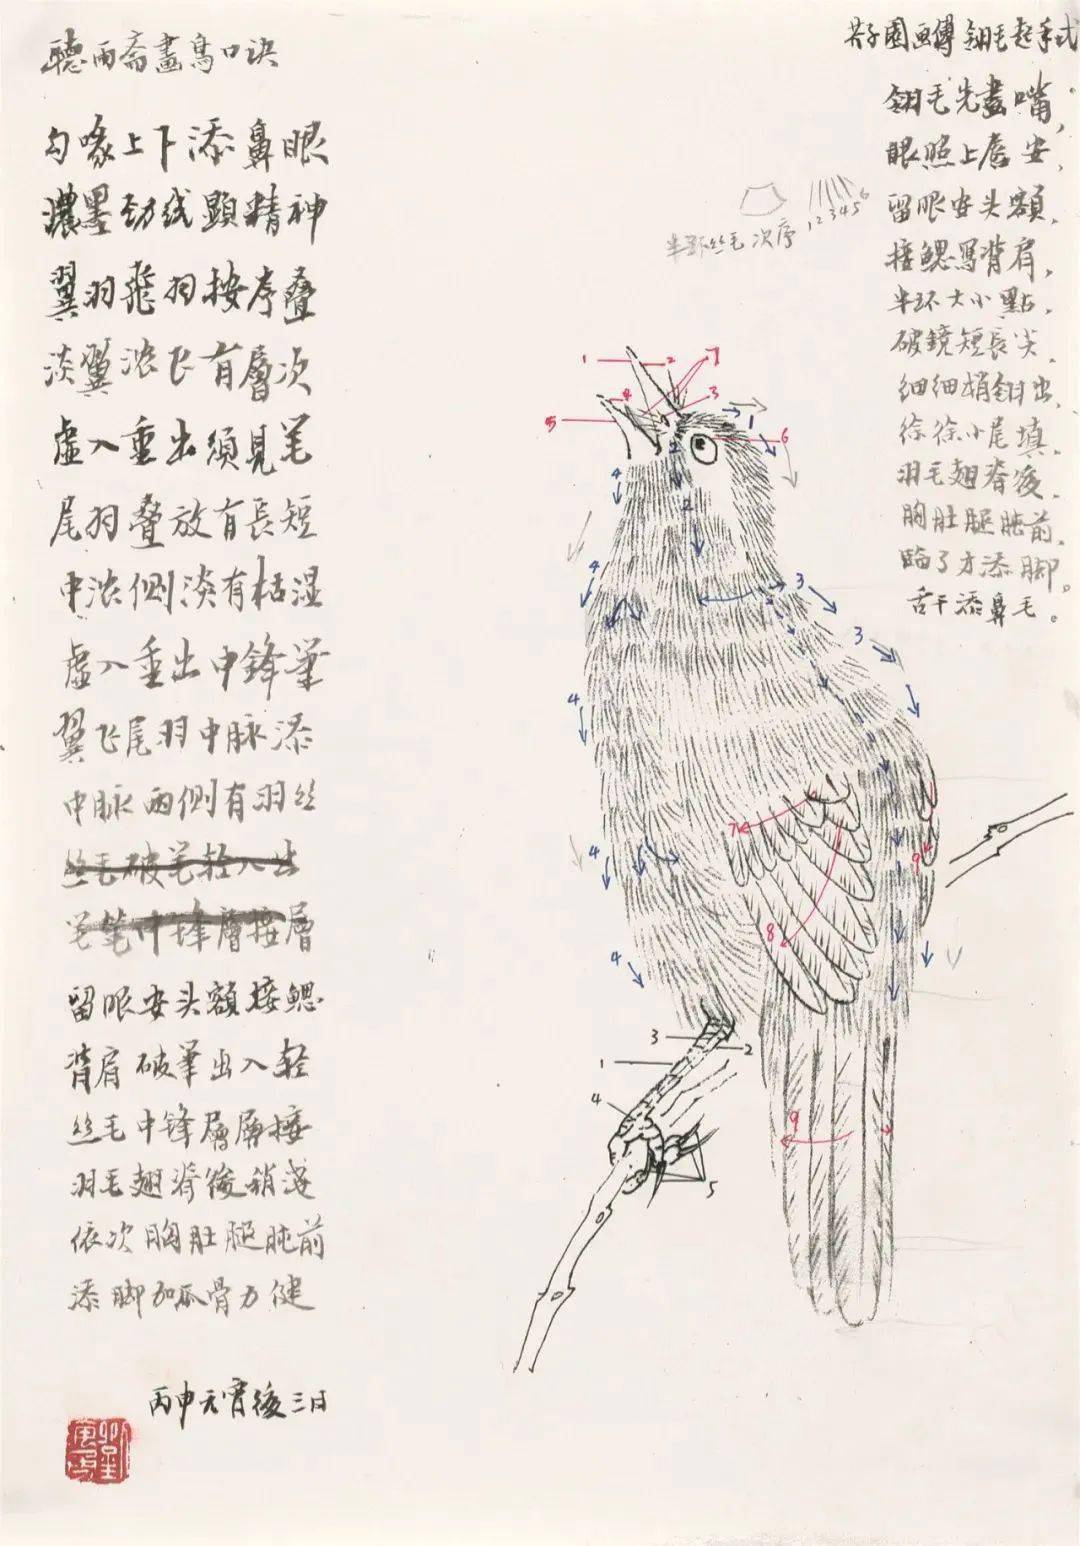 聽雨斋畫鳥口诀
勾喙上下添鼻眼
濃墨劲线顯精神
翼羽飛羽按序叠
淡翼浓飞有層次
虚入重出須見笔
尾羽叠放有長短
中浓侧淡有枯湿
虚入重出中鋒筆
翼飞尾羽中脉添
中脉两侧有羽丝
丝毛破笔轻入出
笔笔中锋層接層
留眼安头額接鳃
背肩破筆出入轻
丝毛中锋層層接
羽毛翅脊後稍淺
依次胸肚腿肫前
添脚加爪骨力健
丙申元宵後三日
芥子園画傳翎毛起手式
翎毛先畫嘴，
眼照上唇安，
留眼安头額，
接鳃寫背肩，
半环大小點，
破鏡短長尖，
细细梢翎出，
徐徐小尾填，
羽毛翅脊後，
胸肚腿肫前，
临了才添脚。
舌干添鼻毛。
半环丝毛次序
1 2 3 4 5 6
1
2
7
3
4
5
6
1
2
4
2
4
3
3
4
7
9
4
8
4
3
2
1
4
9
5